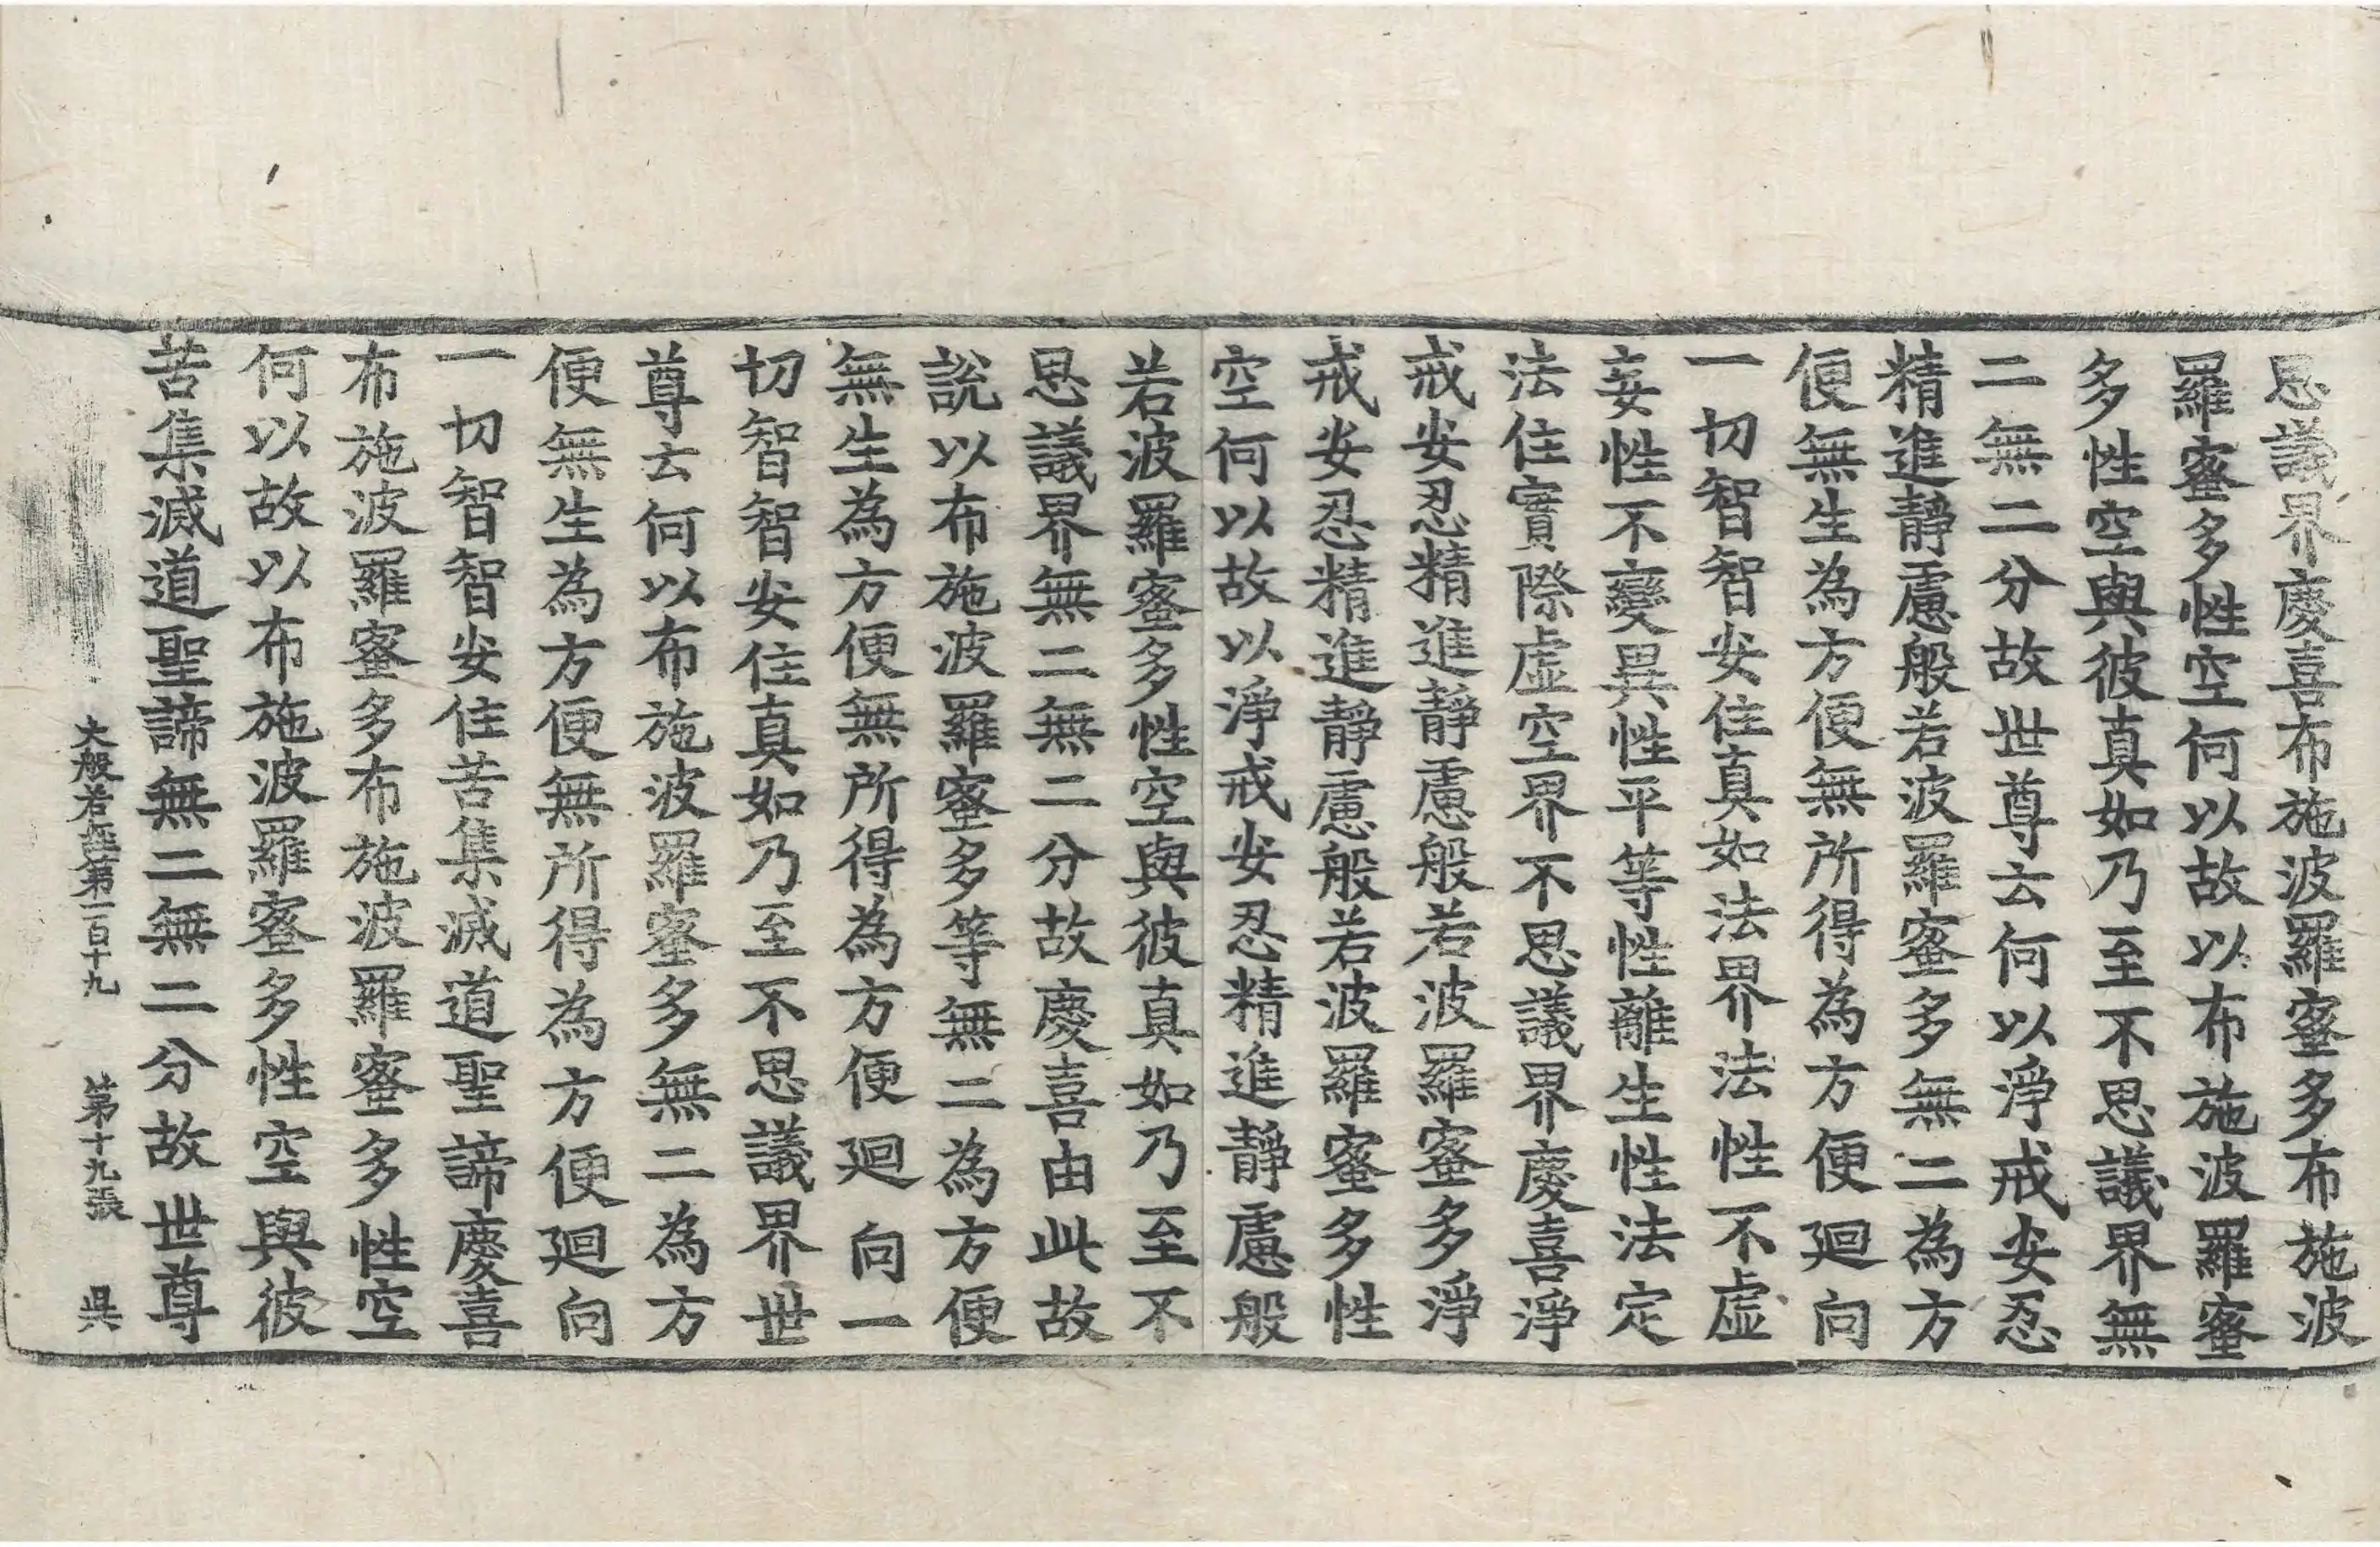 思議界慶喜布施波羅蜜多布施波
羅蜜多性空何以故以布施波羅蜜
多性空與彼真如乃至不思議界無
二無二分故世尊云何以淨戒安忍
精進靜慮般若波羅蜜多無二為方
便無生為方便無所得為方便迴向
一切智智安住真如法界法性不虛
妄性不變異性平等性離生性法定
法住實際虛空界不思議界慶喜淨
戒安忍精進靜慮般若波羅蜜多淨
戒安忍精進靜慮般若波羅蜜多性
空何以故以淨戒安忍精進靜慮般
若波羅蜜多性空與彼真如乃至不
思議界無二無二分故慶喜由此故
說以布施波羅蜜多等無二為方便
無生為方便無所得為方便迴向一
切智智安住真如乃至不思議界世
尊云何以布施波羅蜜多無二為方
便無生為方便無所得為方便迴向
一切智智安住苦集滅道聖諦慶喜
布施波羅蜜多布施波羅蜜多性空
何以故以布施波羅蜜多性空與彼
苦集滅道聖諦無二無二分故世尊
大般若經第一百十九 第十九張 吳